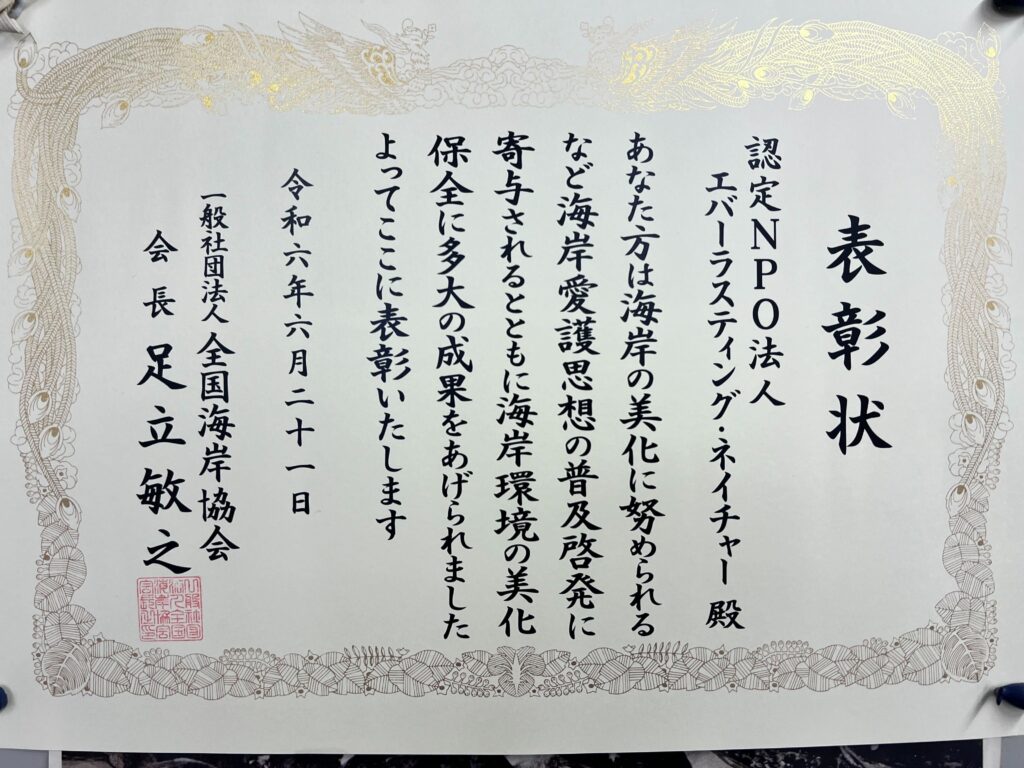 表彰状
認定NPO法人
エバーラスティング・ネイチャー 殿
あなた方は海岸の美化に努められる
など海岸愛護思想の普及啓発に
寄与されるとともに海岸環境の美化
保全に多大の成果をあげられました
よってここに表彰いたします
令和六年六月二十一日
一般社団法人 全国海岸協会
会長 足立敏之